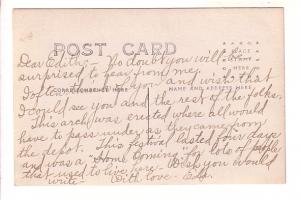 POST CARD
PLACE
STAMP
HERE
CORRESPONDENCE HERE
NAME AND ADDRESS HERE
Dear Edith:- No doubt you will be
surprised to hear from me.
I often think of you and wish that
I could see you and the rest of the folks.
This arch was erected where all would
have to pass under as they came from
the depot. This festival lasted four days
and was a "Home Coming" for lots of people
that used to live here- Wish you would
write - With love -